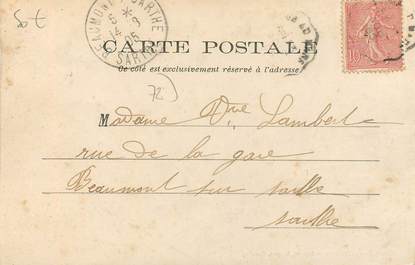 BEAUMONT SARTHE
6 * 3
14 05
SARTHE
CARTE POSTALE
Ce côté est exclusivement réservé à l'adresse
72
Madame Vve Lambert
rue de la gare
Beaumont sur sarthe
sarthe
10